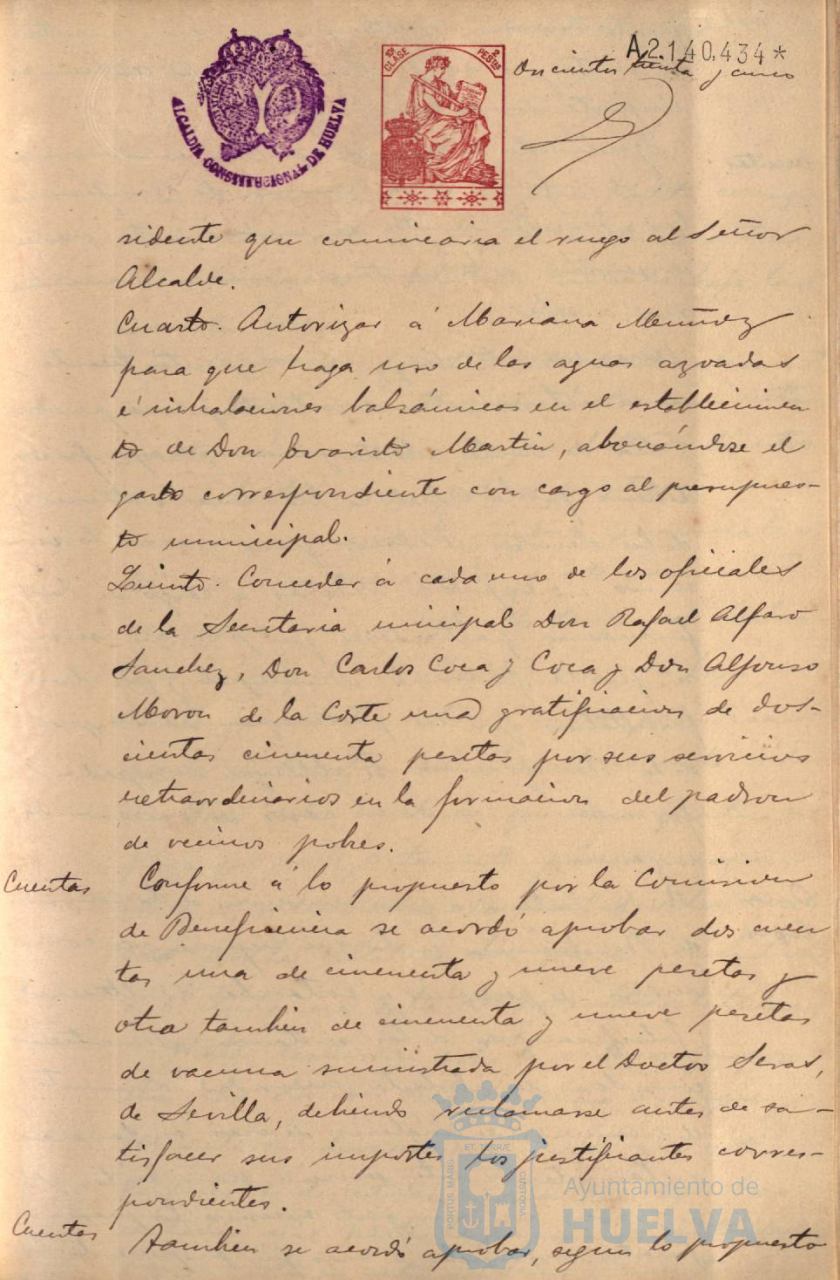 A2.140.434*
10ª CLASE 2 PESETAS
Doscientos treinta y cinco
ALCALDIA CONSTITUCIONAL DE HUELVA
sidente que comunicaria el ruego al Señor
Alcalde.
Cuarto. Autorizar á Mariana Muñoz
para que haga uso de las aguas azoadas
é inhalaciones balsámicas en el establecimien
to de Don Evaristo Martin, abonándose el
gasto correspondiente con cargo al presupues-
to municipal.
Quinto. Conceder á cada uno de los oficiales
de la Secretaria municipal Don Rafael Alfaro
Sanchez, Don Carlos Coca y Coca y Don Alfonso
Moron de la Corte una gratificacion de dos-
cientas cincuenta pesetas por sus servicios
extraordinarios en la formacion del padron
de vecinos pobres.
Cuentas Conforme á lo propuesto por la Comision
de Beneficencia se acordó aprobar dos cuen
tas una de cincuenta y nueve pesetas y
otra tambien de cincuenta y nueve pesetas
de vacuna suministrada por el Doctor Seras,
de Sevilla, debiendo reclamarse antes de sa-
tisfacer sus importes los justificantes corres-
pondientes.
Cuentas Tambien se acordó aprobar, segun lo propuesto
PORTUS MARIS ET TERRAE CUSTODIA
Ayuntamiento de
HUELVA